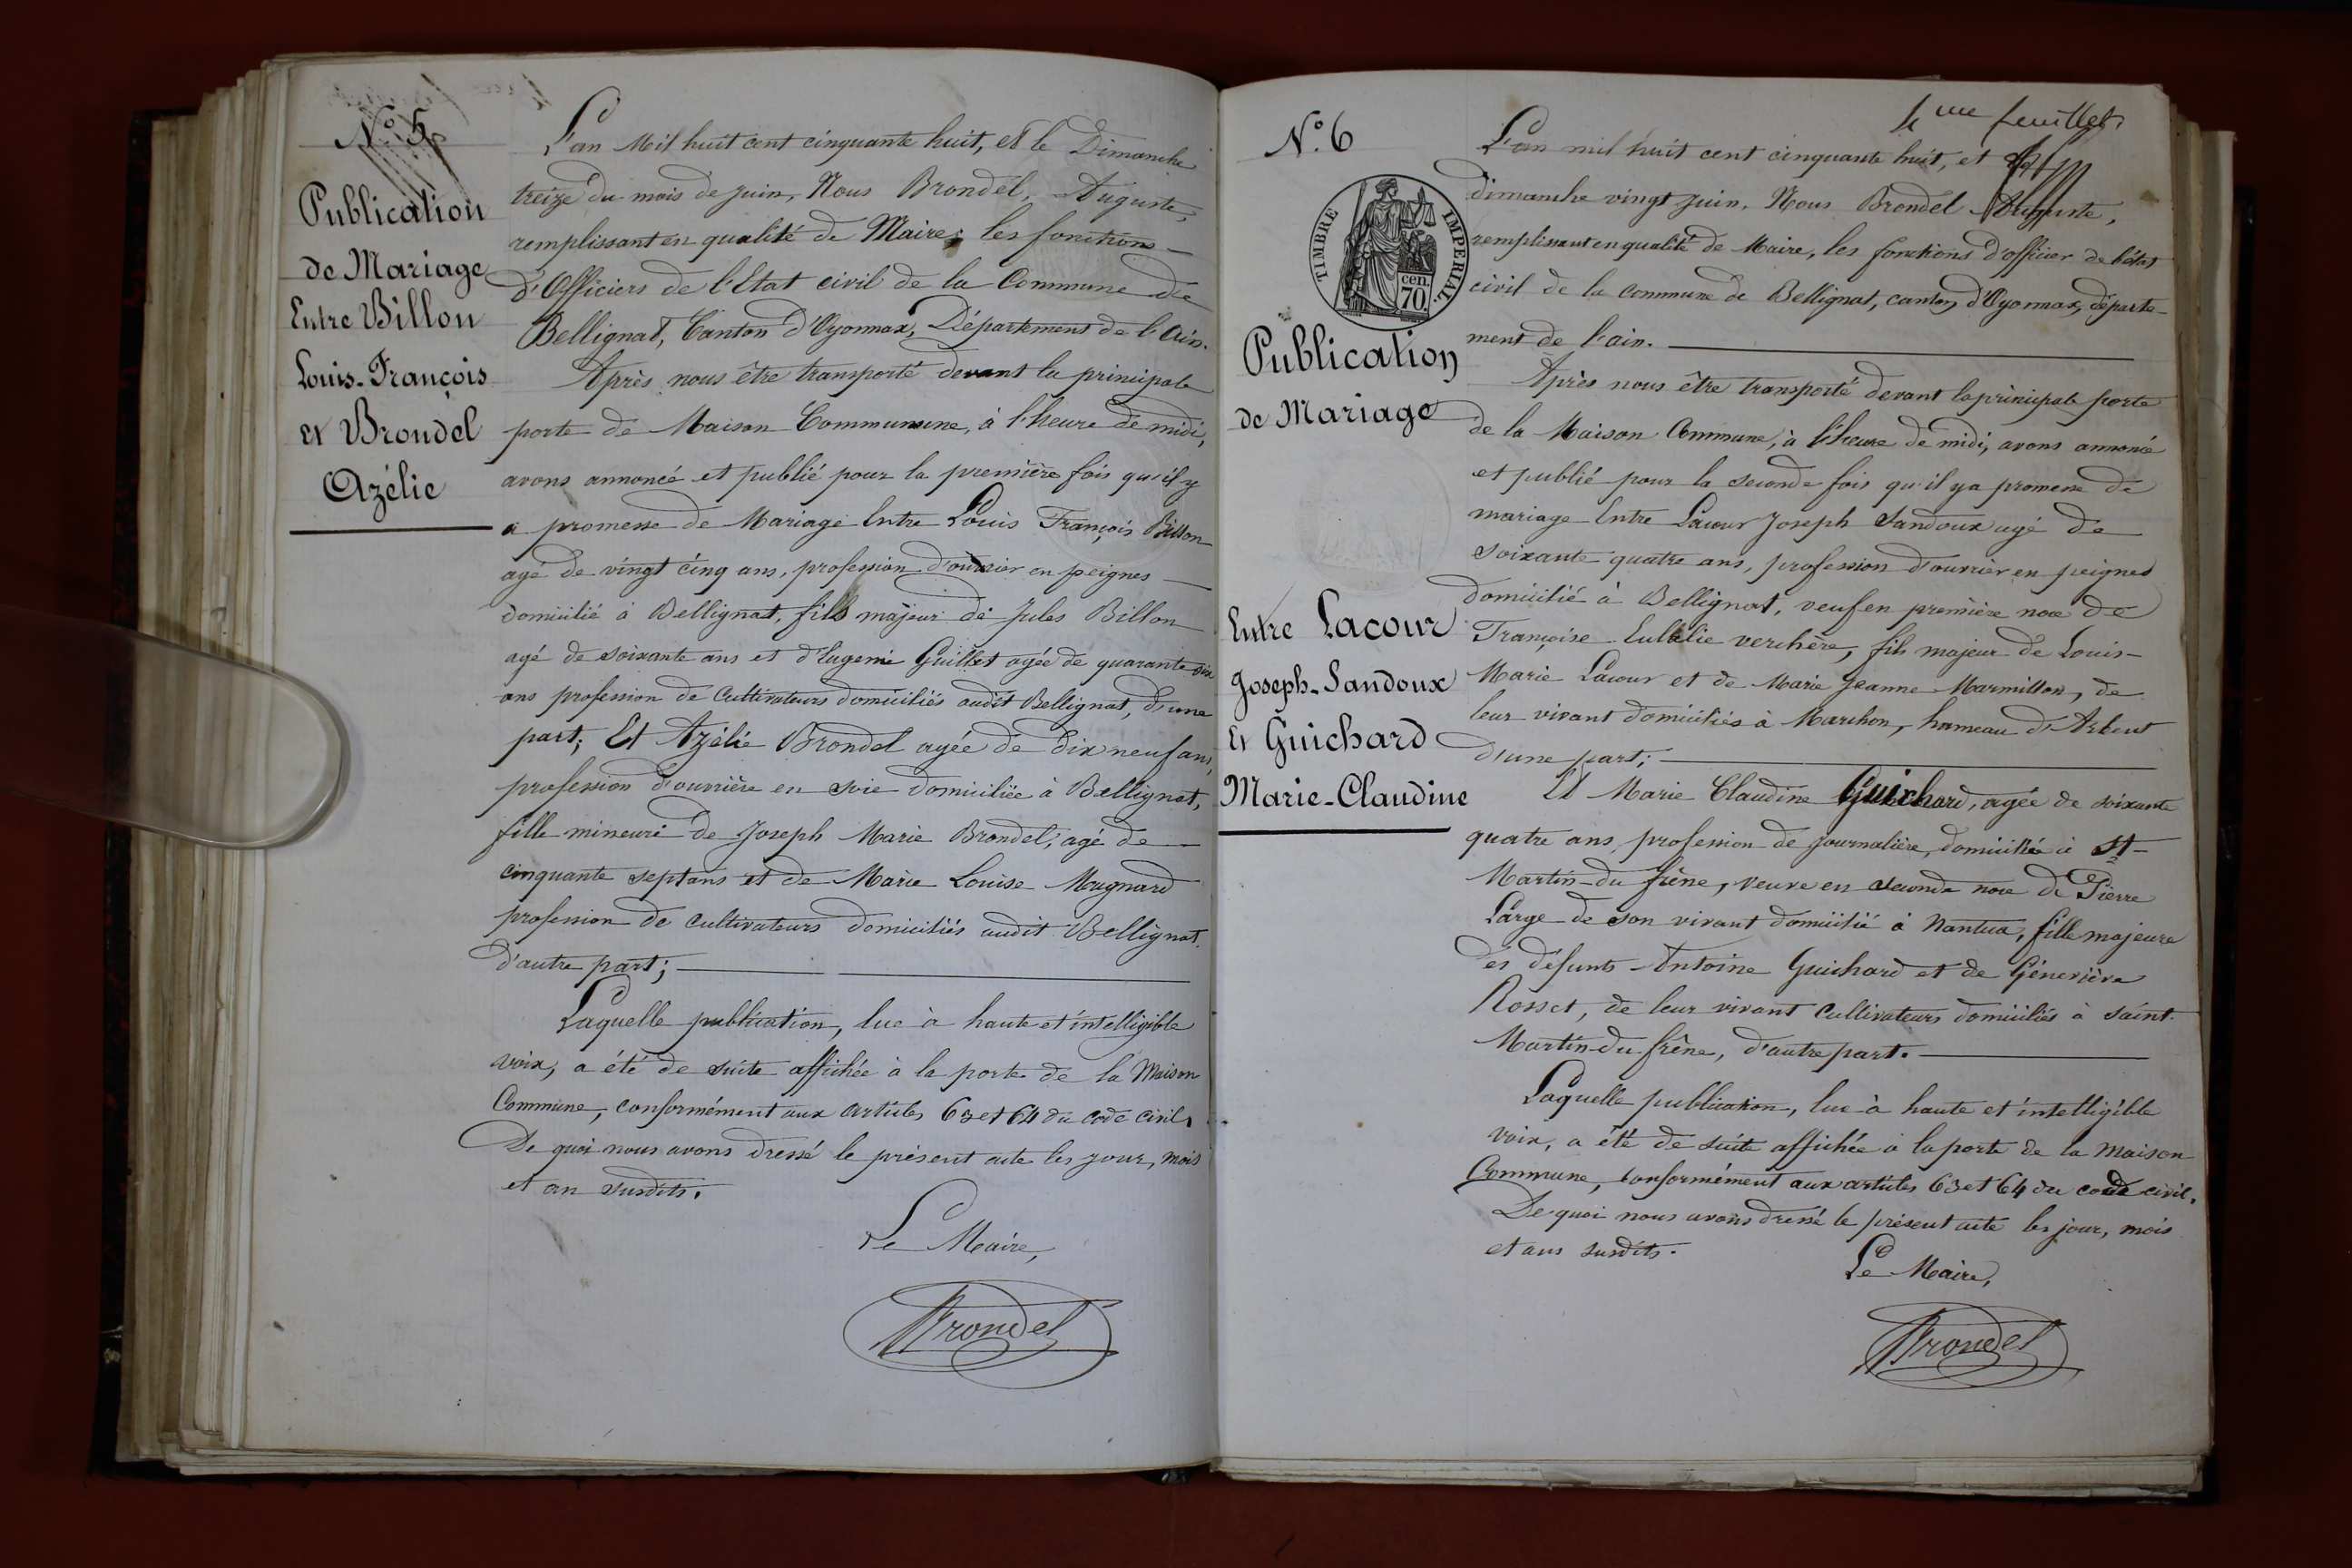 N.° 5
Publication
de Mariage
Entre Billon
Louis-François
et Brondel
Azélie
L'an Mil huit cent cinquante huit, et le Dimanche
treize du mois de juin, Nous Brondel, Auguste,
remplissant en qualité de Maire, les fonctions
d'Officiers de l'Etat civil de la Commune de
Bellignat, Canton d'Oyonnax, Département de l'Ain.
Après nous être transporté devant la principale
porte de Maison Commune, à l'heure de midi,
avons annoncé et publié pour la première fois qu'il y
a promesse de Mariage Entre Louis François Billon
agé de vingt cinq ans, profession d'ouvrier en peignes
domicilié à Bellignat, fils majeur de Jules Billon
agé de soixante ans et d'Eugenie Guillet agée de quarante six
ans profession de Cultivateurs domiciliés audit Bellignat, d'une
part; Et Azélie Brondel agée de dix neuf ans,
profession d'ouvrière en soie domiciliée à Bellignat,
fille mineure de Joseph Marie Brondel, agé de
cinquante sept ans et de Marie Louise Mugnard
profession de cultivateurs domiciliés audit Bellignat.
d'autre part;
Laquelle publication, lue à haute et intelligible
voix, a été de suite affichée à la porte de la Maison
Commune, conformément aux articles 63 et 64 du code civil.
De quoi nous avons dressé le présent acte les jour, mois
et an susdits.
Le Maire,
Brondel
4me feuillet
N.° 6
TIMBRE IMPERIAL
70 cen.
Publication
de Mariage
Entre Lacour
Joseph-Sandoux
Et Guichard
Marie-Claudine
L'an mil huit cent cinquante huit, et le
dimanche vingt juin, Nous Brondel Auguste,
remplissant en qualité de Maire, les fonctions d'officier de l'état
civil de la commune de Bellignat, canton d'Oyonnax, départe-
ment de l'ain.
Après nous être transporté devant la principale porte
de la Maison Commune, à l'heure de midi, avons annoncé
et publié pour la seconde fois qu'il y a promesse de
mariage Entre Lacour Joseph Sandoux agé de
soixante quatre ans, profession d'ouvrier en peignes
domicilié à Bellignat, veuf en première noce de
Françoise Eulalie verchère, fils majeur de Louis-
Marie Lacour et de Marie Jeanne Marmillon, de
leur vivant domiciliés à Marchon, hameau d'Arbent
d'une part;
Et Marie Claudine Guichard, agée de soixante
quatre ans, profession de journalière, domiciliée à St-
Martin-du frêne, veuve en seconde noce de Pierre
Large de son vivant domicilié à Nantua, fille majeure
des défunts Antoine Guichard et de Géneviève
Rosset, de leur vivant cultivateurs domiciliés à saint.
Martin-du frêne, d'autre part.
Laquelle publication, lue à haute et intelligible
voix, a été de suite affichée à la porte de la Maison
Commune, conformément aux articles 63 et 64 du code civil.
De quoi nous avons dressé le présent acte les jour, mois
et ans susdits.
Le Maire,
Brondel